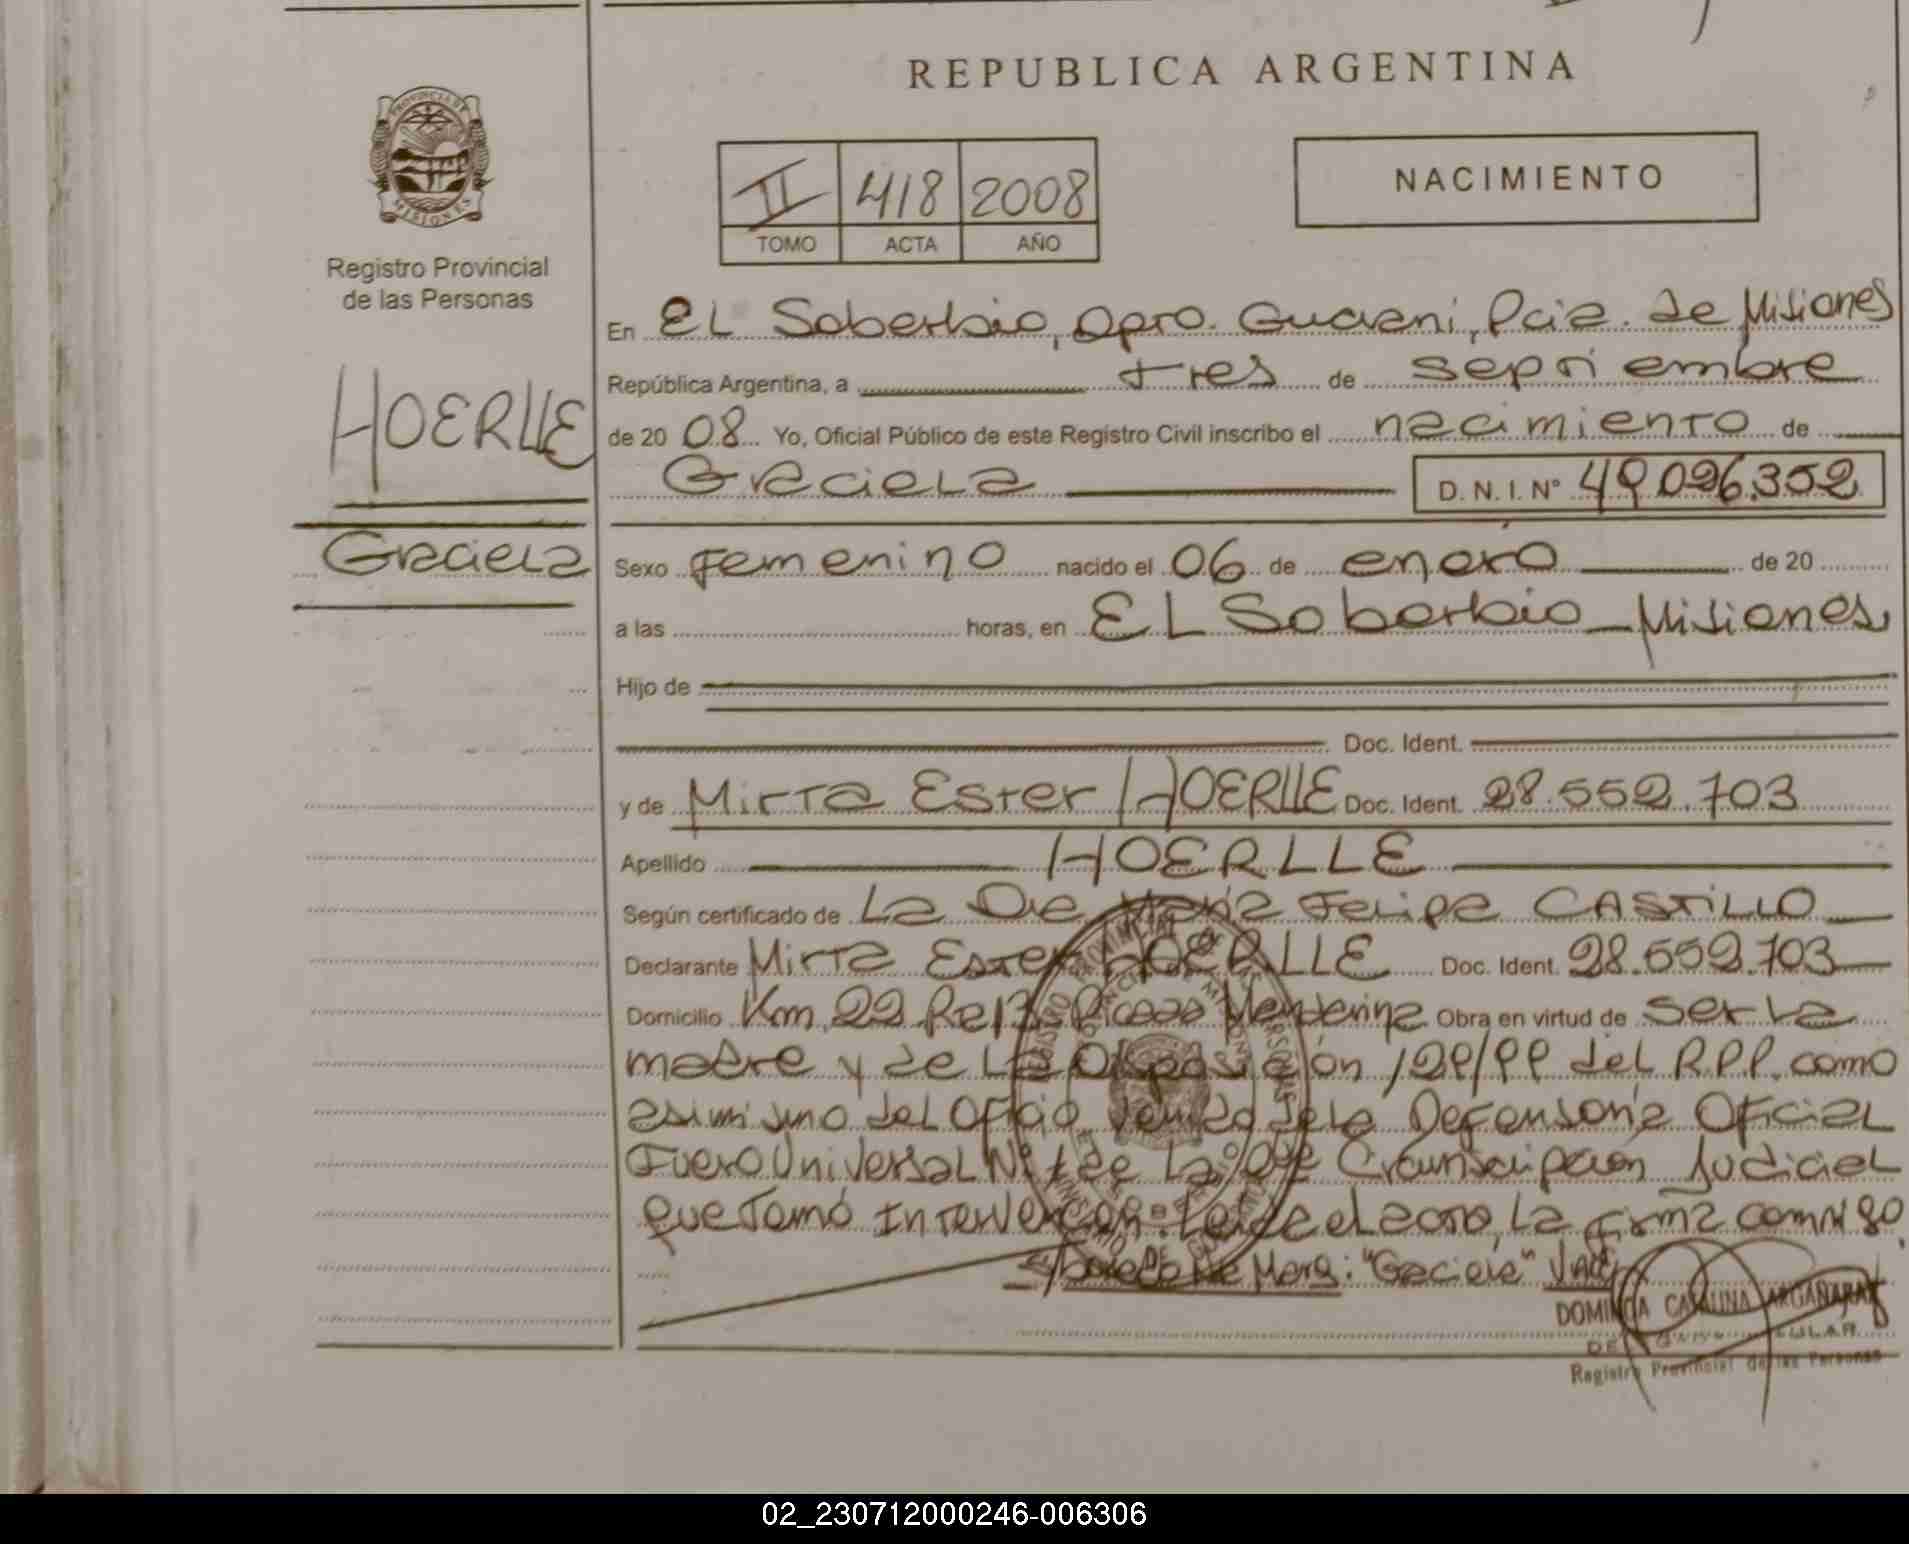 REPUBLICA ARGENTINA
PROVINCIA DE
MISIONES
II 418 2008
TOMO ACTA AÑO
NACIMIENTO
Registro Provincial
de las Personas
HOERLLE
Graciela
En El Soberbio, Dpto. Guarani, Pcia. de Misiones
República Argentina, a tres de septiembre
de 2008 Yo, Oficial Público de este Registro Civil inscribo el nacimiento de
Graciela D. N. I. Nº 49.026.352
Sexo Femenino nacido el 06 de enero de 20
a las horas, en El Soberbio - Misiones
Hijo de
Doc. Ident.
y de Mirta Ester HOERLLE Doc. Ident. 28.552.703
Apellido HOERLLE
Según certificado de La Dra María Felipa CASTILLO
Declarante Mirta Ester HOERLLE Doc. Ident. 28.552.703
Domicilio Km. 22 Picada Mandarina Obra en virtud de ser la
madre y de la Disposición 129/99 del R.P.P. como
asimismo del Oficio de la Defensoría Oficial
Fuero Universal Nº 1 de la Circunscripción Judicial
que tomó intervención. Leída el acta, la firma conmigo.
"Graciela" Vale
DOMINGA CATALINA ARGAÑARAZ
Registro Provincial de las Personas
02_230712000246-006306